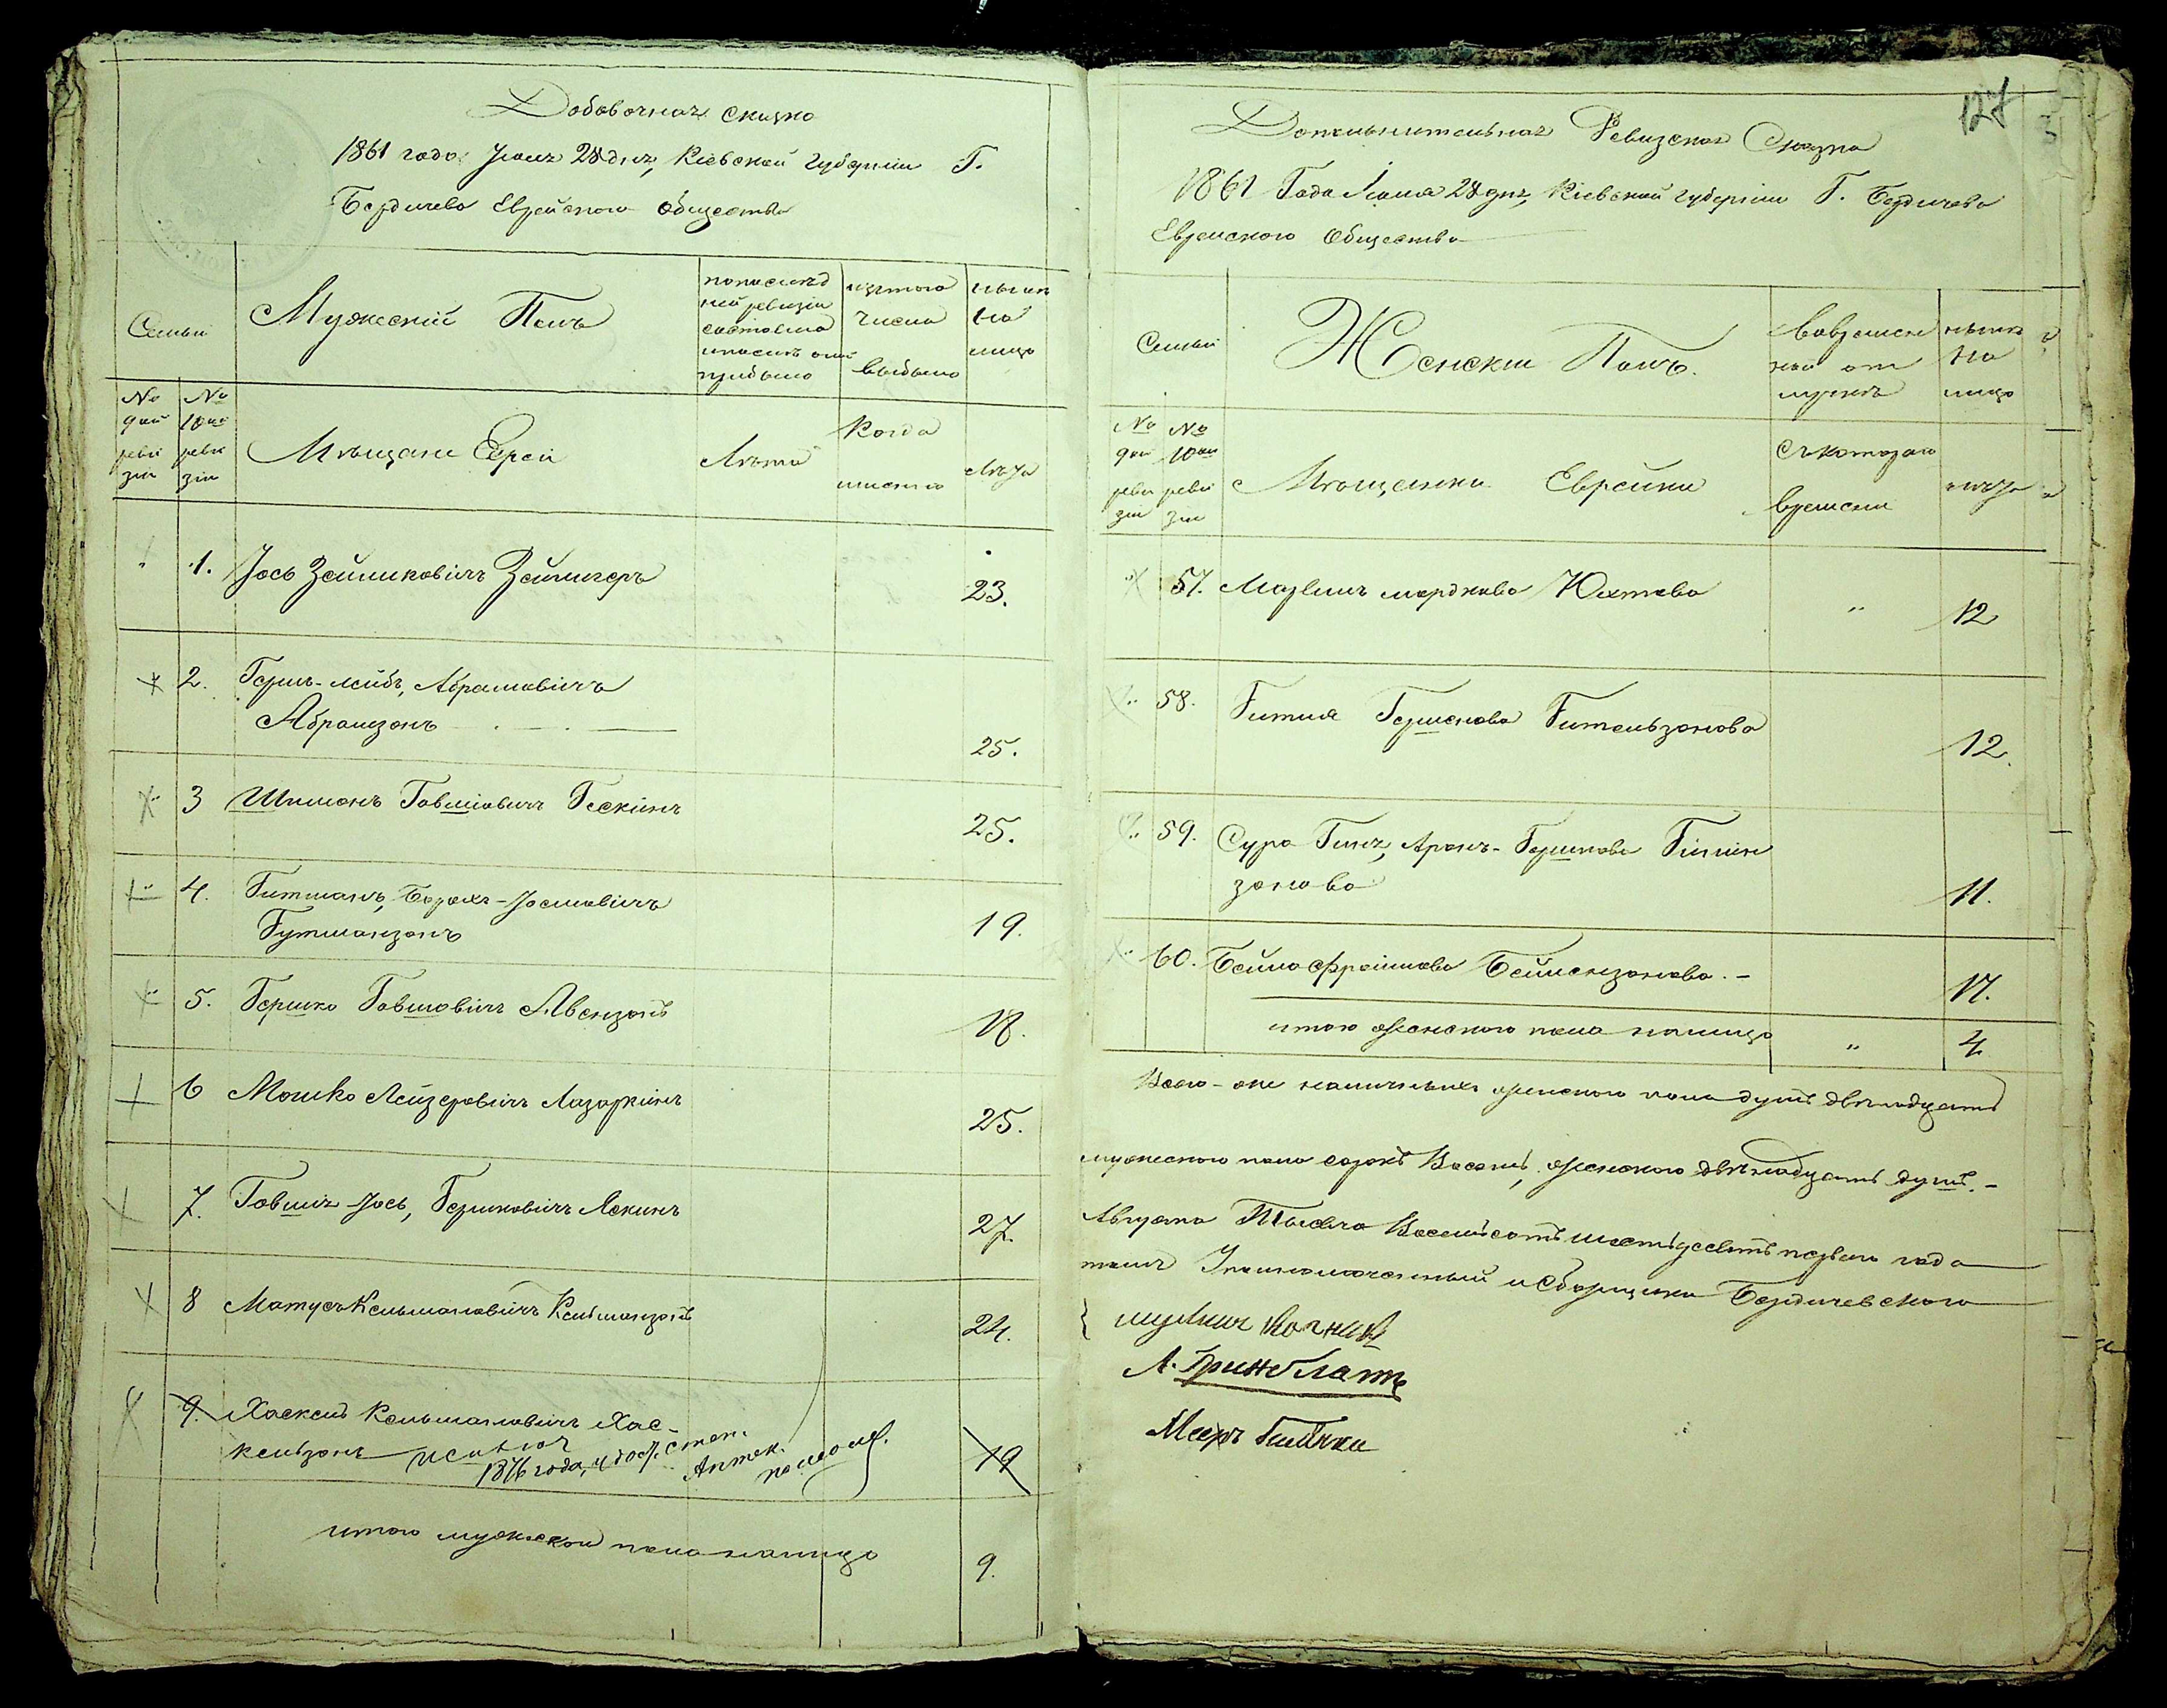 Добавочная сказка
1861 года Юля 28 дня, Кіевской губерніи Г.
Бердичева Еврейского общества
Семьи
Мужескій Полъ
по послѣд
ней ревизіи
состояло
и послѣ оной
прибыло
изъ того
числа
выбыло
нынѣ
на
лицо
№
9ой
реви
зіи
№
10ой
реви
зіи
Мѣщане Евреи
Лѣта
Когда
именно
Лѣта
1. Іось Зейликовичъ Зейлигеръ
23.
2. Гершъ-Лейбъ, Абрамовичъ
Абрамзонъ
25.
3 Шимонъ Говшіовичъ Гескинъ
25.
4. Гитманъ, Борохъ-Іосіовичъ
Гутманзонъ
19.
5. Гершко Говшовичъ Авензонъ
18.
6 Мошко Лейзеровичъ Лазаркинъ
25.
7. Говшія Іось, Гершковичъ Лекинъ
27.
8 Матусъ Кельмановичъ Кельманзонъ
24.
9. Хаскель Кельмановичъ Хас-
кельзонъ исключ
1876 года, удост. степ.
Аптек.
помощ.
19
итого мужеского пола налицо
9.
127
Дополнительная Ревизская Сказка
1861 Года Юля 28 дня, Кіевской губерніи Г. Бердичева
Еврейского Общества
Семьи
Женскій Полъ.
Во времен
ной от
лучкѣ
нынѣ
на
лицо
№
9ой
реви
зіи
№
10ой
реви
зіи
Мѣщанки Еврейки
Съ котораго
времени
лѣта
57. мордкова Юхтова
" 12
58. Гитля Гершкова Гительзонова
12.
59. Сура Гиня, Аронъ-Гершкова Гинин
зонова
11.
60. Бейла Фроимова Бейлензонова. -
17.
итого женского пола налицо " 4
Всего-же наличныхъ женского пола душъ двѣнадцать
мужеского пола сорокъ Восемь, женского двѣнадцать душъ. -
Августа Тысяча Восемьсотъ шестьдесятъ перваго года
Уполномоченный и Сборщики Бердичевского
А. Гринблатъ
Мееръ